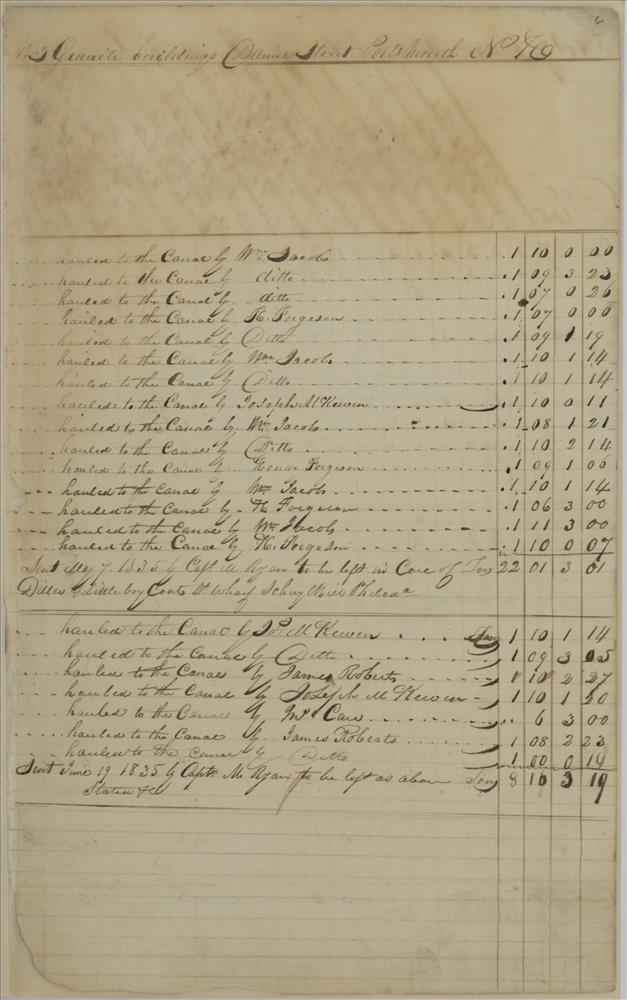 6
Granite buildings Daniel Street Portsmouth N H
hauled to the Canal by Wm. Jacobs 1 10 0 00
hauled to the Canal by ditto 1 09 3 23
hauled to the Canal by ditto 1 07 0 26
hauled to the Canal by H. Forgeson 1 07 0 00
hauled to the Canal by Ditto 1 09 1 19
hauled to the Canal by Wm Jacobs 1 10 1 14
hauled to the Canal by Ditto 1 10 1 14
hauled to the Canal by Joseph McKewen 1 10 0 11
hauled to the Canal by Wm Jacobs 1 08 1 21
hauled to the Canal by Ditto 1 10 2 14
hauled to the Canal by Forgeson 1 09 1 00
hauled to the Canal by Wm Jacobs 1 10 1 14
hauled to the Canal by H Forgeson 1 06 3 00
hauled to the Canal by Wm Jacobs 1 11 3 00
hauled to the Canal by H. Forgeson 1 10 0 07
Sent May 7. 1835 by Capt. M Ryan to be left in Care of Tons 22 01 3 01
Diller & Littleboy Coats St. Wharf Schuylkill Philada
hauled to the Canal by Js. McKewen Tons 1 10 1 14
hauled to the Canal by Ditto 1 09 3 05
hauled to the Canal by James Roberts 1 10 2 27
hauled to the Canal by Joseph McKewen 1 10 1 20
hauled to the Canal by Care 6 3 00
hauled to the Canal by James Roberts 1 08 2 23
hauled to the Canal by Ditto 1 00 0 14
Sent June 19 1835 by Captn. Mc Ryan to be left as above Tons 8 16 3 19
Stated &c